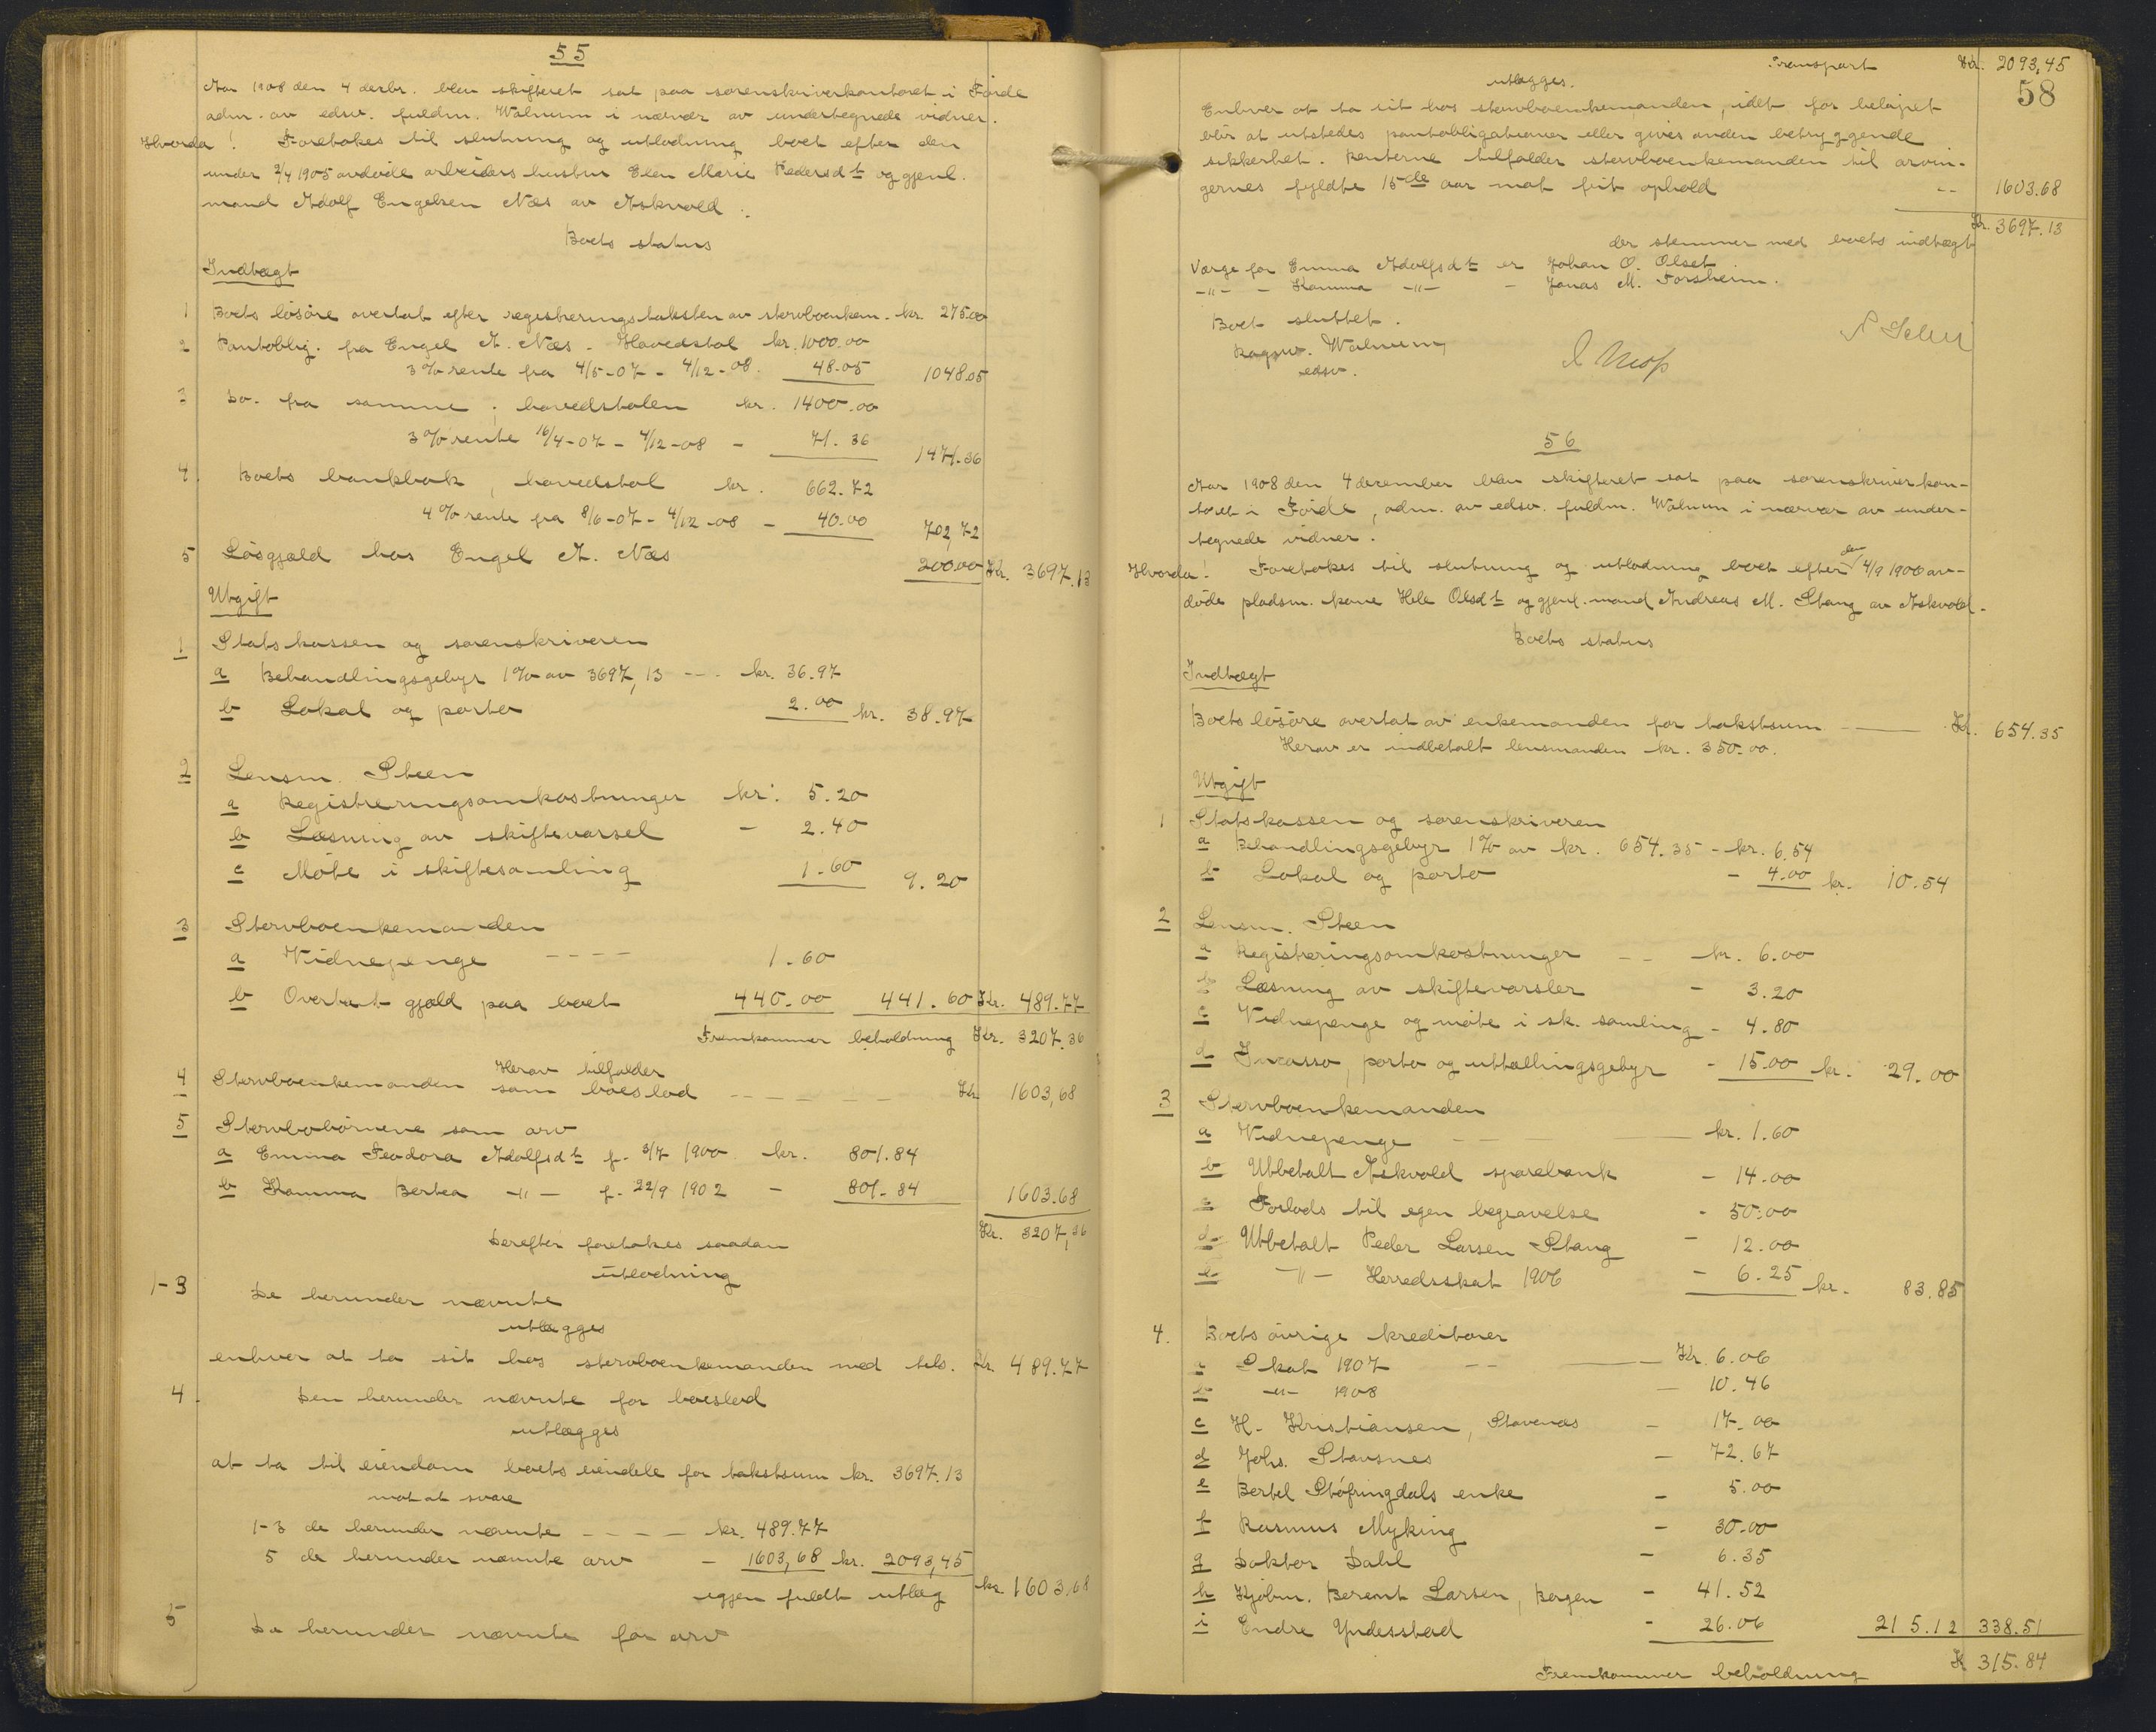 55
Aar 1908 den 4 decbr. blev skifteret sat paa sorenskriverkontoret i Førde
adm. av edsv. fuldm. Walnum i nærvær av undertegnede vidner.
Hvorda! Foretokes til slutning og utlodning boet efter den
under 2/4 1905 avdøde arbeiders hustru Elen Marie Pedersdt og gjenl.
mand Adolf Engelsen Næs av Askvold.
Boets status
Indtægt
1 Boets løsøre overtat efter registreringstaksten av stervboenkem. kr. 275.00
2 Pantoblig. fra Engel A. Næs. Hovedstol kr. 1000.00
3% rente fra 4/5-07 - 4/12-08. 48.05 1048.05
3 Do. fra samme; hovedstolen kr. 1400.00
3% rente 16/4-07 - 4/12-08 - 71.36 1471.36
4. Boets bankbok, hovedstol kr. 662.72
4% rente fra 8/6-07 - 4/12-08 - 40.00 702,72
5 Løsgjæld hos Engel A. Næs 200.00 Kr. 3697.13
Utgift
1 Statskassen og sorenskriveren
a Behandlingsgebyr 1% av 3697,13 --- kr. 36.97
b Lokal og porto 2.00 kr. 38.97
2 Lensm. Steen
a Registreringsomkostninger kr. 5.20
b Læsning av skiftevarsel - 2.40
c Møte i skiftesamling 1.60 9.20
3 Stervboenkemanden
a Vidnepenge ---- 1.60
b Overtat gjæld paa boet 440.00 441.60 Kr. 489.77
Fremkommer beholdning Kr. 3207.36
Herav tilfalder
4 Stervboenkemanden som boeslod ------ Kr 1603,68
5 Stervbobørnene som arv
a Emma Feodora Adolfsdt f. 3/7 1900 kr. 801.84
b Kamma Bertea -"- f. 22/9 1902 - 801.84 1603.68
Kr. 3207,36
Derefter foretokes saadan
utlodning
1-3 De herunder nævnte
utlægges
enhver at ta sit hos stervboenkemanden med tils. Kr. 489.77
4. Den herunder nævnte for boeslod
utlægges
at ta til eiendom boets eiendele for takstsum kr. 3697.13
mot at svare
1-3 de herunder nævnte ---- kr. 489.77
5 de herunder nævnte arv - 1603,68 kr. 2093,45
igjen fuldt utlæg kr. 1603.68
5 De herunder nævnte for arv
Transport Kr. 2093,45
58
utlægges.
Enhver at ta sit hos stervboenkemanden, idet for beløpet
blir at utstedes pantobligationer eller gives anden betryggende
sikkerhet. Renterne tilfalder stervboenkemanden til arvin-
gernes fyldte 15de aar mot frit ophold -- 1603.68
Kr. 3697.13
der stemmer med boets indtægt
Værge for Emma Adolfsdt er Johan O. Olset
-"- - Kamma -"- - Jonas M. Forsheim.
Boet sluttet.
Ragnv. Walnum,
edsv.
56
Aar 1908 den 4 december blev skifteret sat paa sorenskriverkon-
toret i Førde, adm. av edsv. fuldm. Walnum i nærvær av under-
tegnede vidner.
Hvorda! Foretokes til slutning og utlodning boet efter den 4/9 1900 av-
døde pladsm. kone Hele Olsdt og gjenl. mand Andreas M. Stang av Askvold.
Boets status
Indtægt
Boets løsøre overtat av enkemanden for takstsum --- Kr. 654.35
Herav er indbetalt lensmanden kr. 350.00.
Utgift
1 Statskassen og sorenskriveren
a Behandlingsgebyr 1% av kr. 654.35 - kr. 6.54
b Lokal og porto - 4.00 kr. 10.54
2 Lensm. Steen
a Registreringsomkostninger -- kr. 6.00
b Læsning av skiftevarsler - 3.20
c Vidnepenge og møte i sk. samling - 4.80
d Incasso, porto og uttællingsgebyr - 15.00 kr. 29.00
3 Stervboenkemanden
a Vidnepenge --- kr. 1.60
b Utbetalt Askvold sparebank - 14.00
c Forlods til egen begravelse - 50.00
d Utbetalt Peder Larsen Stang - 12.00
e -"- Herredsskat 1906 - 6.25 kr. 83.85
4. Boets øvrige kreditorer
a Skat 1907 --- Kr. 6.06
b -"- 1908 - 10.46
c H. Kristiansen, Stavenæs - 17.00
d Johs. Stavsnes - 72.67
e Bertel Støfringdals enke - 5.00
f Rasmus Myking - 30.00
g Doktor Dahl - 6.35
h Kjøbm. Berent Larsen, Bergen - 41.52
i Endre Yndesstad - 26.06 215.12 338.51
Fremkommer beholdning K 315.84